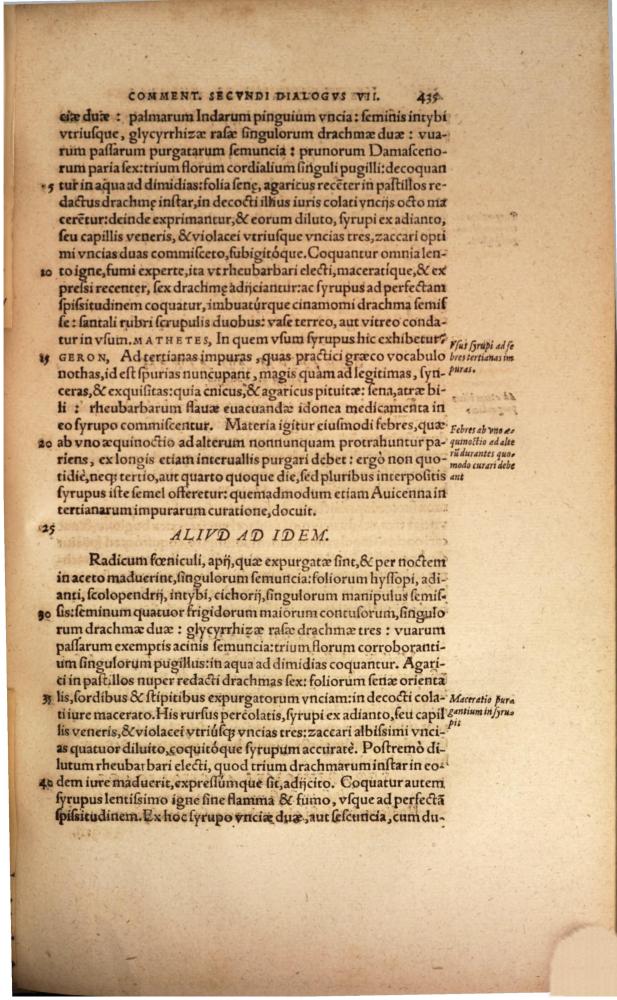 COMMENT. SECVNDI DIALOGVS VII. 435
ciæ duæ : palmarum Indarum pinguium vncia: seminis intybi
vtriusque, glycyrrhizæ rasæ singulorum drachmæ duæ : vua-
rum passarum purgatarum semuncia : prunorum Damasceno-
rum paria sex: trium florum cordialium singuli pugilli: decoquan
5 tur in aqua ad dimidias: folia senę, agaricus recẽter in pastillos re-
dactus drachmę instar, in decocti illius iuris colati vncijs octo ma
cerẽtur: deinde exprimantur, & eorum diluto, syrupi ex adianto,
seu capillis veneris, & violacei vtriusque vncias tres, zaccari opti
mi vncias duas commisceto, subigitóque. Coquantur omnia len-
10 to igne, fumi experte, ita vt rheubarbari electi, maceratique, & ex
pressi recenter, sex drachmę adijciantur: ac syrupus ad perfectam
spissitudinem coquatur, imbuatúrque cinamomi drachma semis
se : santali rubri scrupulis duobus: vase terreo, aut vitreo conda-
tur in vsum. MATHETES, In quem vsum syrupus hic exhibetur?
Vsus syrupi ad fe
bres tertianas im
puras.
15 GERON, Ad tertianas impuras, quas practici græco vocabulo
nothas, id est spurias nuncupant, magis quàm ad legitimas, syn-
ceras, & exquisitas: quia cnicus, & agaricus pituitæ: sena, atræ bi-
li : rheubarbarum flauæ euacuandæ idonea medicamenta in
eo syrupo commiscentur. Materia igitur eiusmodi febres, quæ
Febres ab vno æ-
quinoctio ad alte
rũ durantes quo-
modo curari debe
ant
20 ab vno æquinoctio ad alterum nonnunquam protrahuntur pa-
riens, ex longis etiam interuallis purgari debet : ergò non quo-
tidiè, neq; tertio, aut quarto quoque die, sed pluribus interpositis
syrupus iste semel offeretur: quemadmodum etiam Auicenna in
tertianarum impurarum curatione, docuit.
25 ALIVD AD IDEM.
Radicum fœniculi, apij, quæ expurgatæ sint, & per noctem
in aceto maduerint, singulorum semuncia: foliorum hyssopi, adi-
anti, scolopendrij, intybi, cichorij, singulorum manipulus semis-
30 sis: seminum quatuor frigidorum maiorum contusorum, singulo
rum drachmæ duæ : glycyrrhizæ rasæ drachmæ tres : vuarum
passarum exemptis acinis semuncia: trium florum corroboranti-
um singulorum pugillus: in aqua ad dimidias coquantur. Agari-
ci in pastillos nuper redacti drachmas sex: foliorum senæ orienta
35 lis, sordibus & stipitibus expurgatorum vnciam: in decocti cola-
Maceratio pura
gantium in syru-
pis
ti iure macerato. His rursus percolatis, syrupi ex adianto, seu capil
lis veneris, & violacei vtriúsq; vncias tres: zaccari albissimi vnci-
as quatuor diluito, coquitóque syrupum accuratè. Postremò di-
lutum rheubarbari electi, quod trium drachmarum instar in eo-
40 dem iure maduerit, expressúmque sit, adijcito. Coquatur autem
syrupus lentissimo igne sine flamma & fumo, vsque ad perfectã
spissitudinem. Ex hoc syrupo vnciæ duæ, aut sescuncia, cum du-